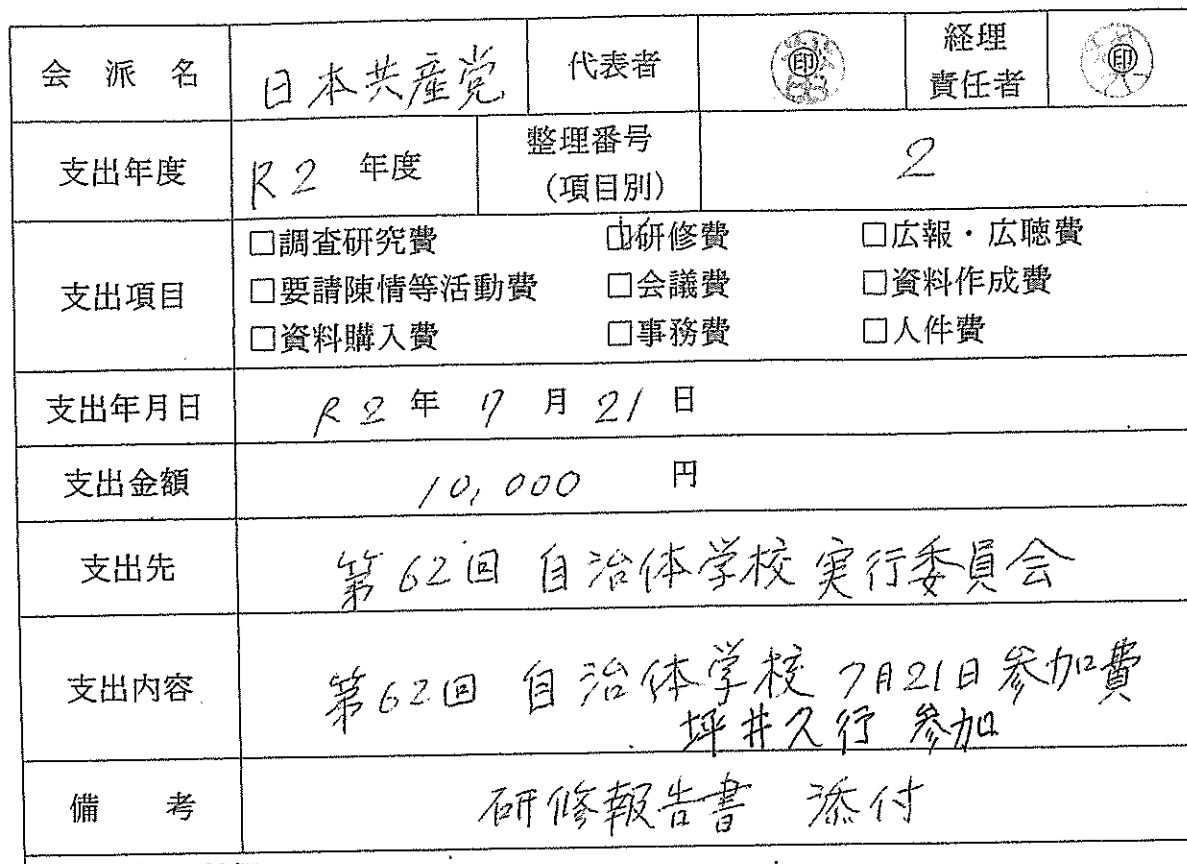 会派名 日本共産党 代表者 印 経理責任者 印
支出年度 R2年度 整理番号(項目別) 2
支出項目
□調査研究費 ☑研修費 □広報・広聴費
□要請陳情等活動費 □会議費 □資料作成費
□資料購入費 □事務費 □人件費
支出年月日 R2年7月21日
支出金額 10,000円
支出先 第62回 自治体学校 実行委員会
支出内容 第62回 自治体学校 7月21日参加費
坪井久行 参加
備考 研修報告書 添付